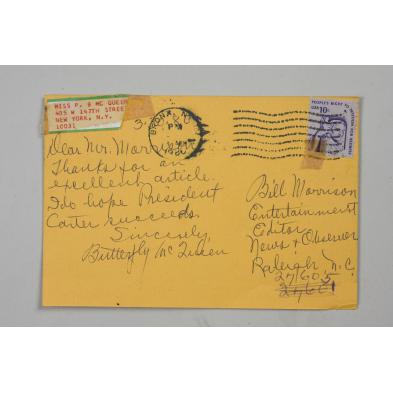 MISS P. B MC QUEEN
405 W 147TH STREET
NEW YORK, N.Y.
10031
BRONX, N.Y.
PM
PEOPLE'S RIGHT TO PETITION FOR REDRESS
USA 10c
Dear Mr. Morrison
Thanks for an
excellent article.
I do hope President
Carter succeeds.
Sincerely,
Butterfly McQueen
Bill Morrison
Entertainment
Editor
News & Observer
Raleigh N.C.
27605